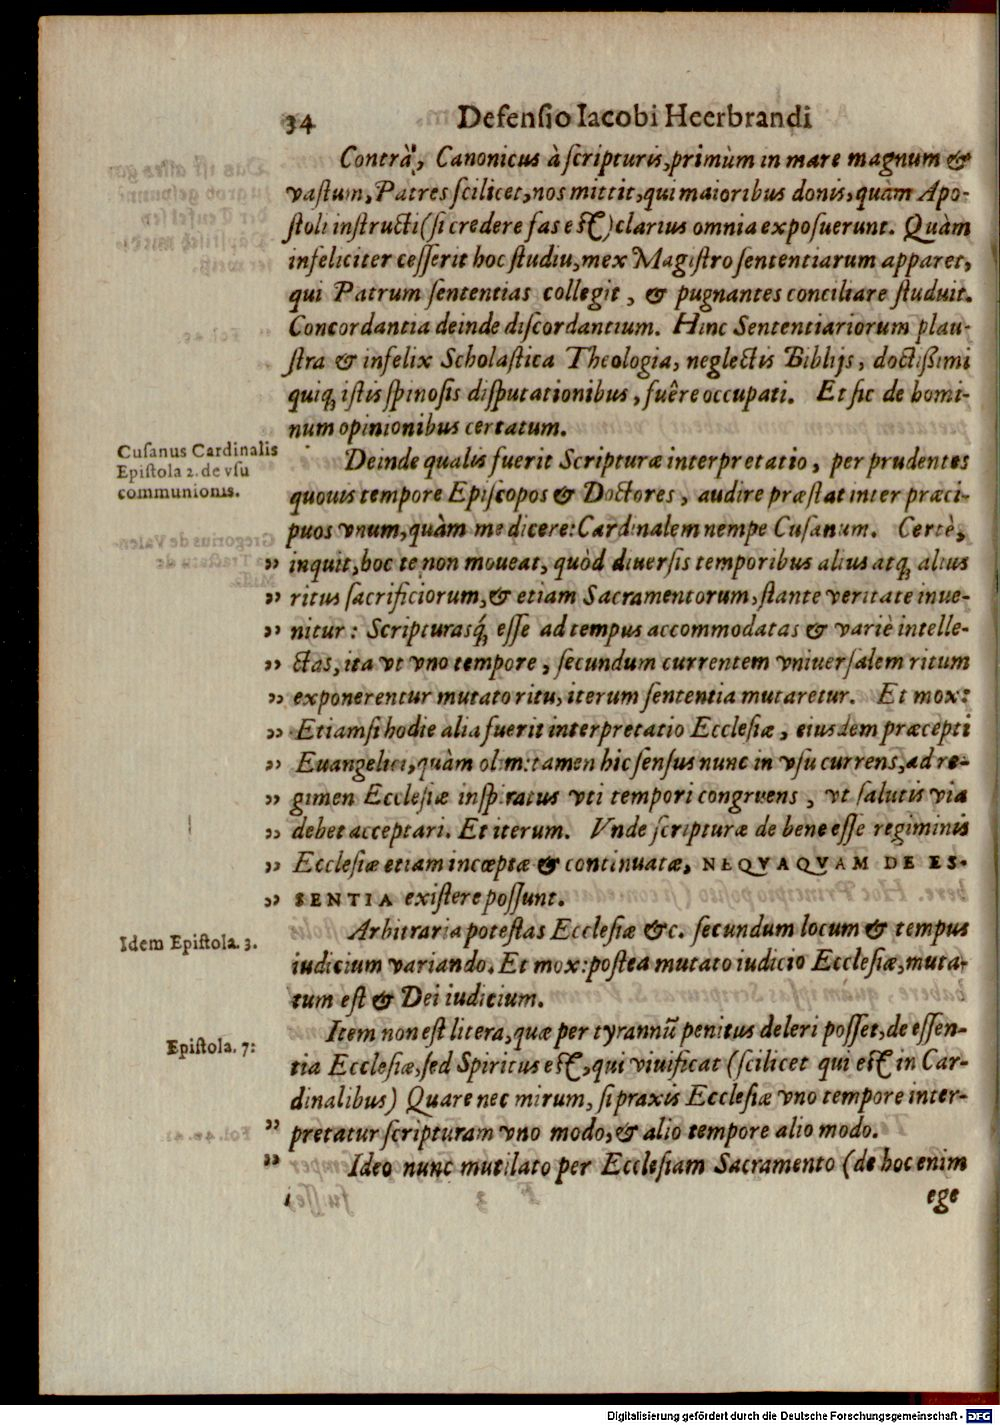 34 Defensio Iacobi Heerbrandi
Contrà, Canonicus à scripturis, primùm in mare magnum &
vastum, Patres scilicet, nos mittit, qui maioribus donis, quàm Apo-
stoli instructi (si credere fas est) clarius omnia exposuerunt. Quàm
infeliciter cesserit hoc studiũ, mex Magistro sententiarum apparet,
qui Patrum sententias collegit, & pugnantes conciliare studuit.
Concordantia deinde discordantium. Hinc Sententiariorum plau-
stra & infelix Scholastica Theologia, neglectis Biblijs, doctißimi
quiq; istis spinosis disputationibus, fuêre occupati. Et sic de homi-
num opinionibus certatum.
Cusanus Cardinalis
Epistola 2. de vsu
communionis.
Deinde qualis fuerit Scripturæ interpretatio, per prudentes
quouis tempore Episcopos & Doctores, audire præstat inter præci-
puos vnum, quàm me dicere: Cardinalem nempe Cusanum. Certè,
„ inquit, hoc te non moueat, quòd diuersis temporibus alius atq; alius
„ ritus sacrificiorum, & etiam Sacramentorum, stante veritate inue-
„ nitur: Scripturasq́; esse ad tempus accommodatas & variè intelle-
„ ctas, ita vt vno tempore, secundum currentem vniuersalem ritum
„ exponerentur mutato ritu, iterum sententia mutaretur. Et mox:
„ Etiamsi hodie alia fuerit interpretatio Ecclesiæ, eiusdem præcepti
„ Euangelici, quàm olim: tamen hic sensus nunc in vsu currens, ad re-
„ gimen Ecclesiæ inspiratus vti tempori congruens, vt salutis via
„ debet acceptari. Et iterum. Vnde scripturæ de bene esse regiminis
„ Ecclesiæ etiam incœptæ & continuatæ, NEQVAQVAM DE ES-
„ SENTIA existere possunt.
Idem Epistola. 3.
Arbitraria potestas Ecclesiæ &c. secundum locum & tempus
iudicium variando. Et mox: postea mutato iudicio Ecclesiæ, muta-
tum est & Dei iudicium.
Epistola. 7:
Item non est litera, quæ per tyrannũ penitus deleri posset, de essen-
tia Ecclesiæ, sed Spiritus est, qui viuificat (scilicet qui est in Car-
dinalibus) Quare nec mirum, si praxis Ecclesiæ vno tempore inter-
„ pretatur scripturam vno modo, & alio tempore alio modo.
„ Ideo nunc mutilato per Ecclesiam Sacramento (de hoc enim
ege
Digitalisierung gefördert durch die Deutsche Forschungsgemeinschaft - DFG